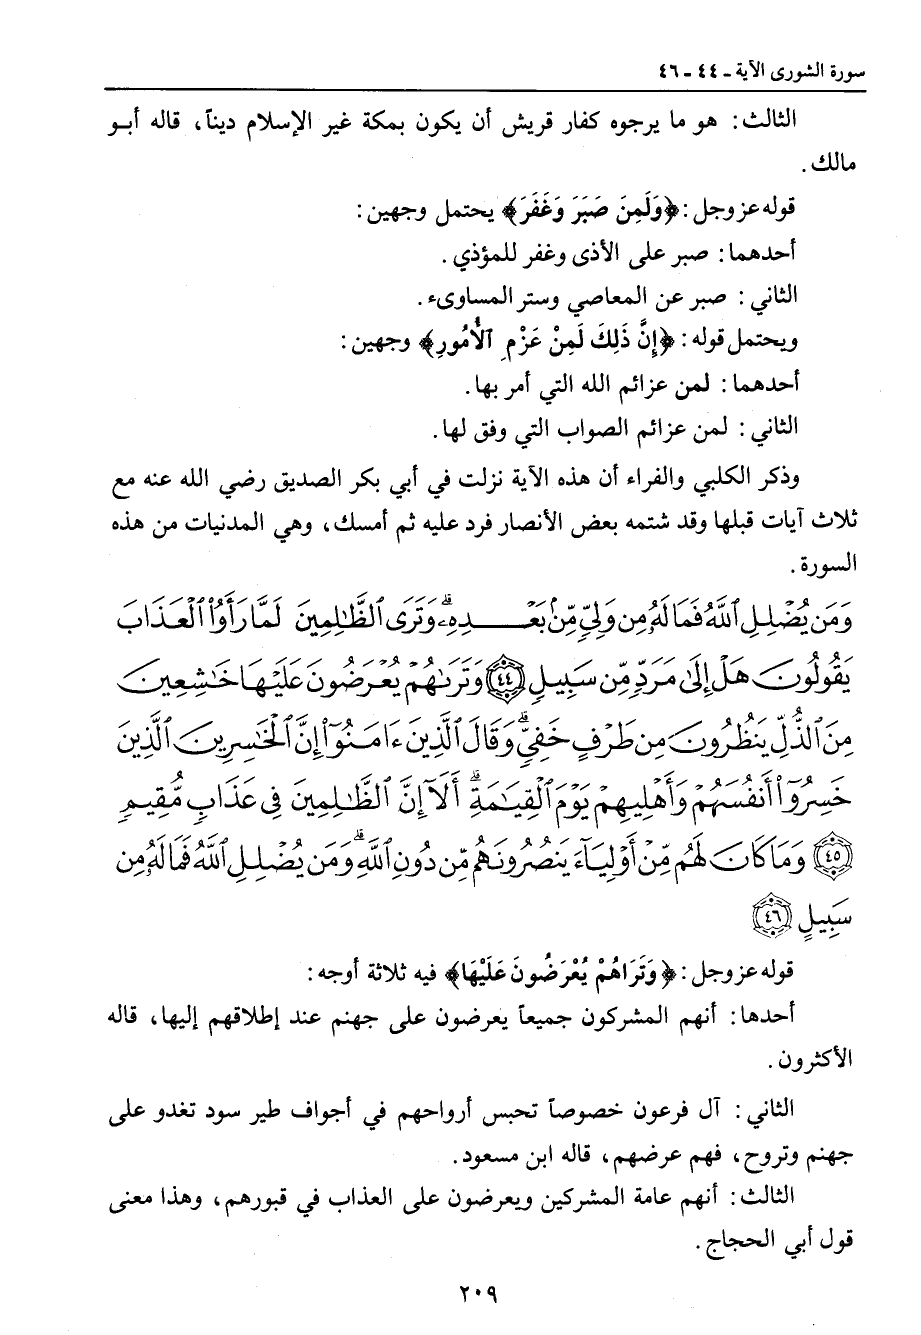 سورة الشورى الآية ـ ٤٤ ـ ٤٦
الثالث: هو ما يرجوه كفار قريش أن يكون بمكة غير الإسلام ديناً، قاله أبو
مالك.
قوله عز وجل: ﴿وَلَمَنِ صَبَرَ وَغَفَرَ﴾ يحتمل وجهين:
أحدهما: صبر على الأذى وغفر للمؤذي.
الثاني: صبر عن المعاصي وستر المساوىء.
ويحتمل قوله: ﴿إِنَّ ذَلِكَ لَمِنْ عَزْمِ الْأُمُورِ﴾ وجهين:
أحدهما: لمن عزائم الله التي أمر بها.
الثاني: لمن عزائم الصواب التي وفق لها.
وذكر الكلبي والفراء أن هذه الآية نزلت في أبي بكر الصديق رضي الله عنه مع
ثلاث آيات قبلها وقد شتمه بعض الأنصار فرد عليه ثم أمسك، وهي المدنيات من هذه
السورة.
وَمَن يُضْلِلِ ٱللَّهُ فَمَا لَهُۥ مِن وَلِيٍّ مِّنۢ بَعْدِهِۦۗ وَتَرَى ٱلظَّٰلِمِينَ لَمَّا رَأَوُا۟ ٱلْعَذَابَ
يَقُولُونَ هَلْ إِلَىٰ مَرَدٍّ مِّن سَبِيلٍ ﴿٤٤﴾ وَتَرَىٰهُمْ يُعْرَضُونَ عَلَيْهَا خَٰشِعِينَ
مِنَ ٱلذُّلِّ يَنظُرُونَ مِن طَرْفٍ خَفِىٍّۗ وَقَالَ ٱلَّذِينَ ءَامَنُوٓا۟ إِنَّ ٱلْخَٰسِرِينَ ٱلَّذِينَ
خَسِرُوٓا۟ أَنفُسَهُمْ وَأَهْلِيهِمْ يَوْمَ ٱلْقِيَٰمَةِۗ أَلَآ إِنَّ ٱلظَّٰلِمِينَ فِى عَذَابٍ مُّقِيمٍ
﴿٤٥﴾ وَمَا كَانَ لَهُم مِّنْ أَوْلِيَآءَ يَنصُرُونَهُم مِّن دُونِ ٱللَّهِۗ وَمَن يُضْلِلِ ٱللَّهُ فَمَا لَهُۥ مِن
سَبِيلٍ ﴿٤٦﴾
قوله عز وجل: ﴿وَتَرَاهُمْ يُعْرَضُونَ عَلَيْهَا﴾ فيه ثلاثة أوجه:
أحدها: أنهم المشركون جميعاً يعرضون على جهنم عند إطلاقهم إليها، قاله
الأكثرون.
الثاني: آل فرعون خصوصاً تحبس أرواحهم في أجواف طير سود تغدو على
جهنم وتروح، فهم عرضهم، قاله ابن مسعود.
الثالث: أنهم عامة المشركين ويعرضون على العذاب في قبورهم، وهذا معنى
قول أبي الحجاج.
٢٠٩